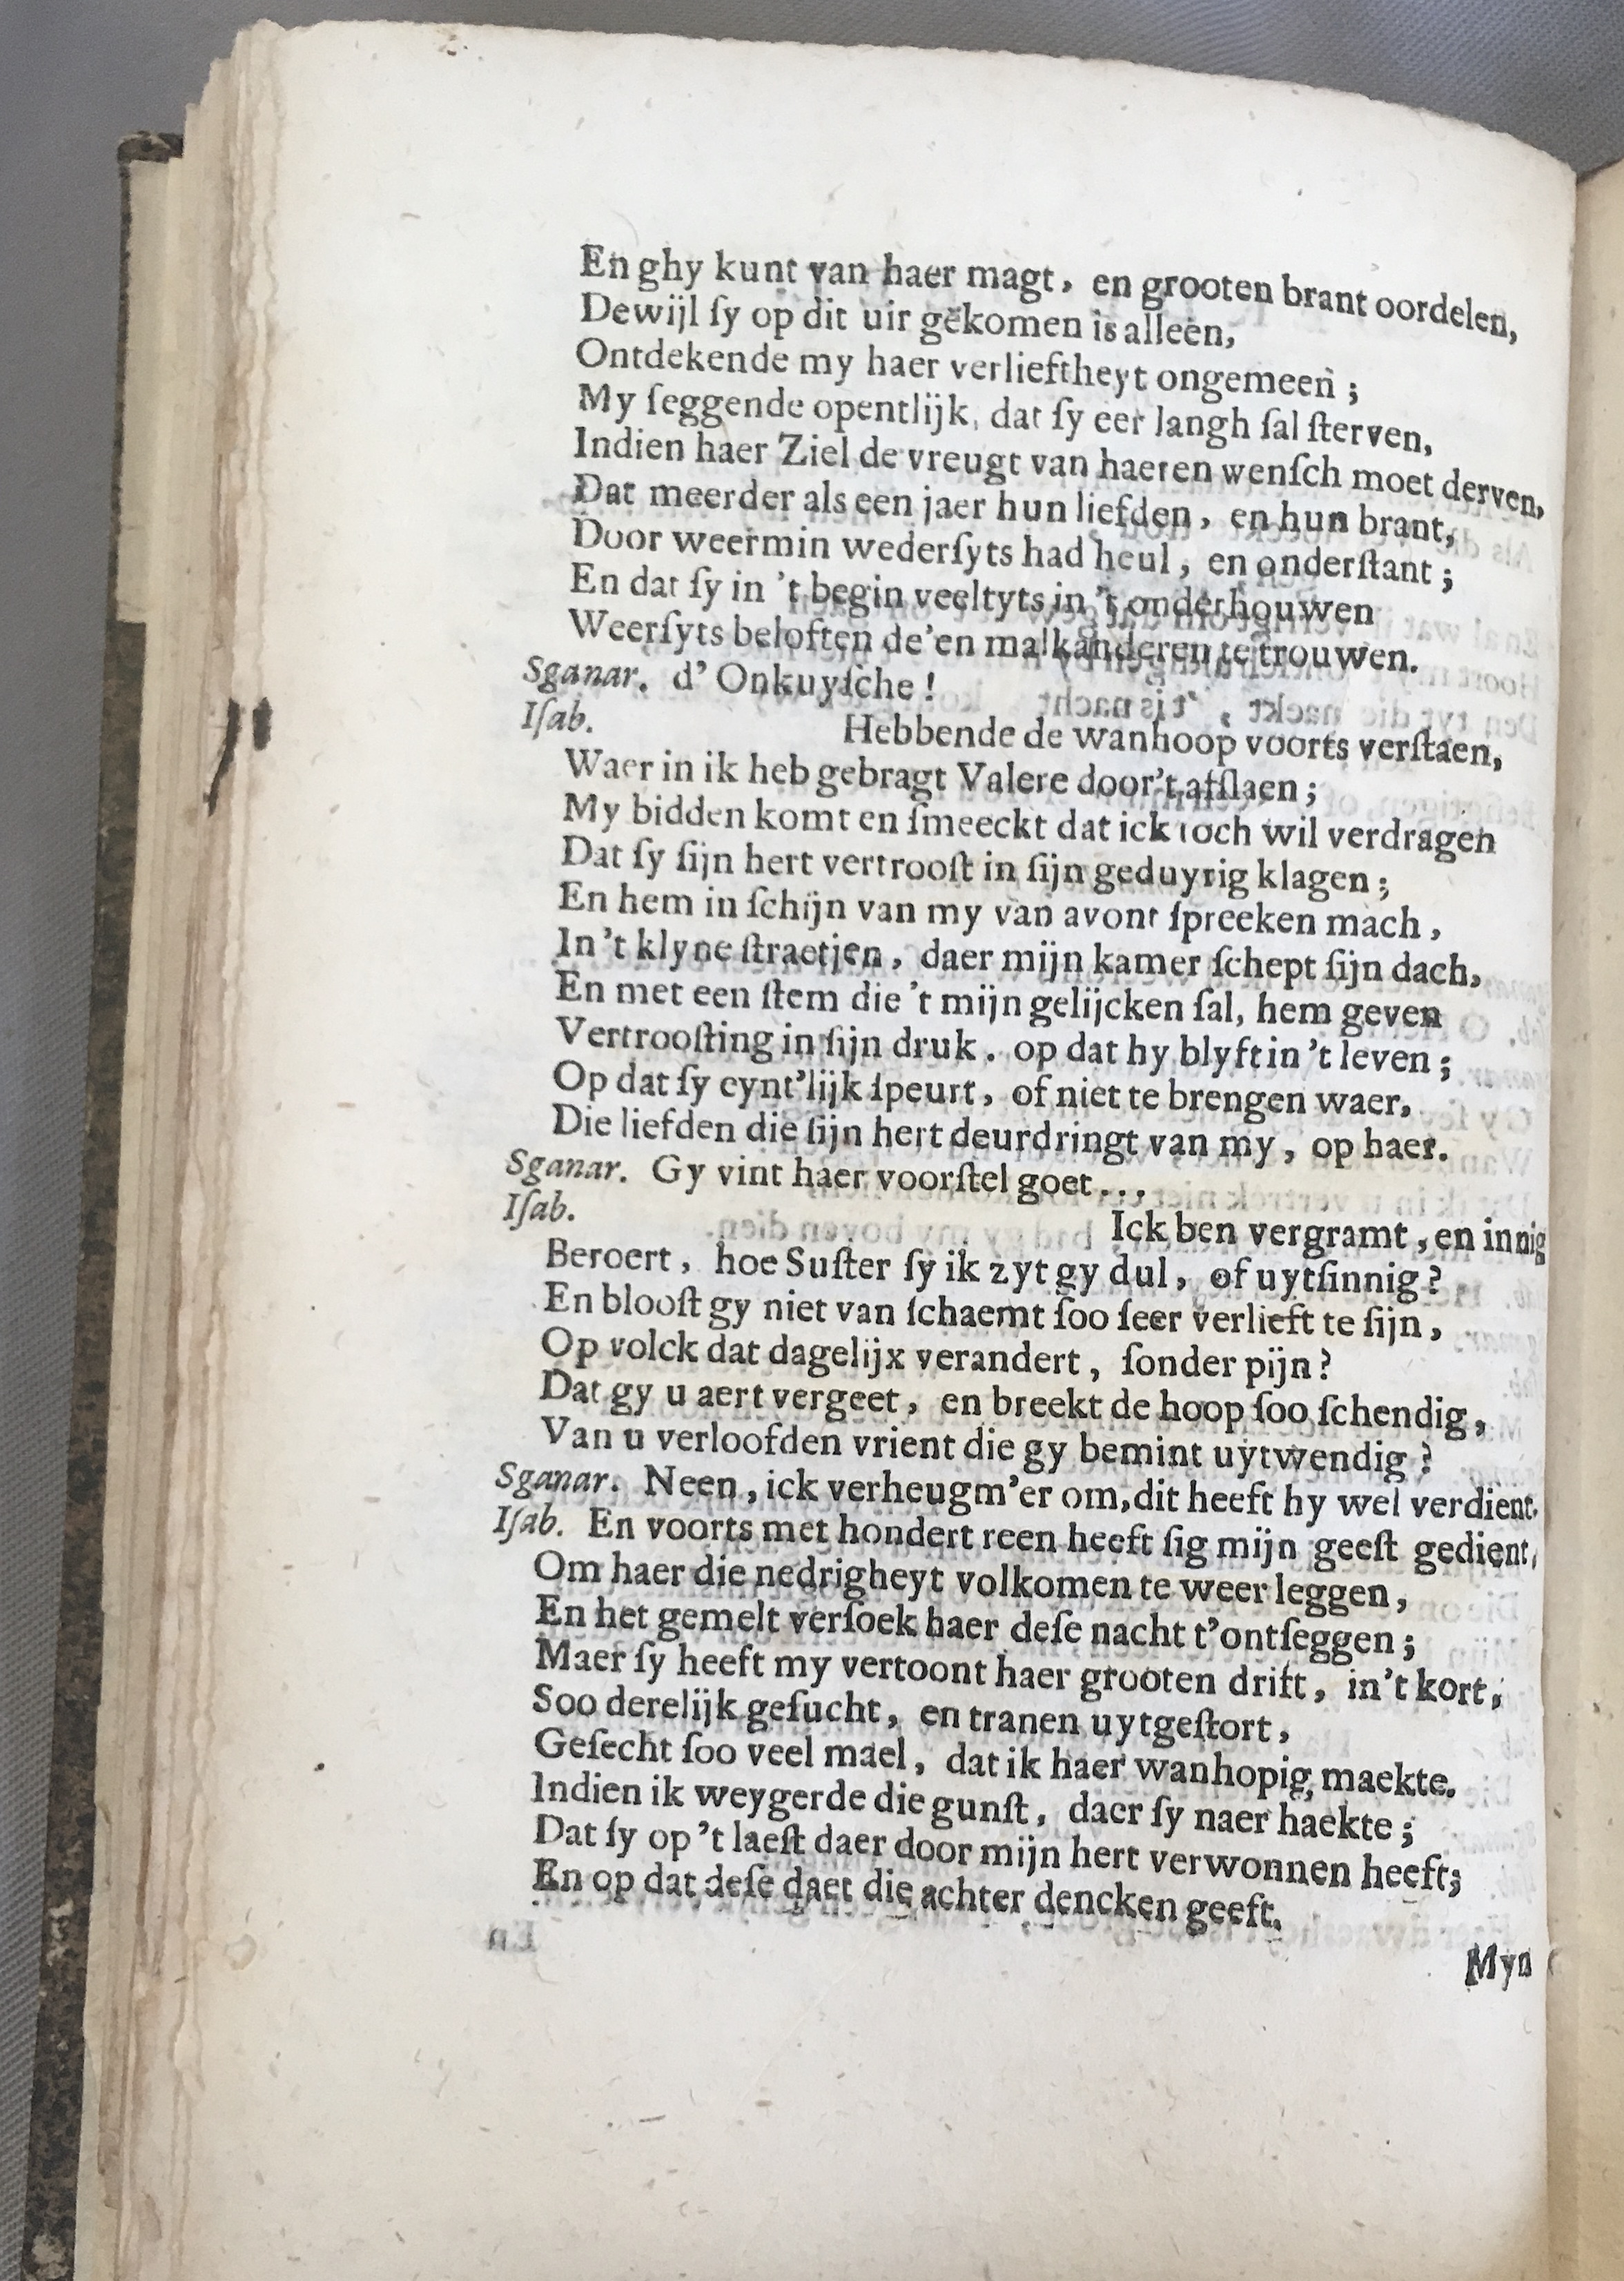 En ghy kunt van haer magt, en grooten brant oordelen,
Dewijl ſy op dit uir gekomen is alleen,
Ontdekende my haer verlieftheyt ongemeen;
My ſeggende opentlijk, dat ſy eer langh ſal ſterven,
Indien haer Ziel de vreugt van haeren wenſch moet derven,
Dat meerder als een jaer hun liefden, en hun brant,
Door weermin wederſyts had heul, en onderſtant;
En dat ſy in 't begin veeltyts in 't onderhouwen
Weerſyts beloften de'en malkanderen te trouwen.
Sganar. d' Onkuyſche!
Iſab. Hebbende de wanhoop voorts verſtaen,
Waer in ik heb gebragt Valere door't afſlaen;
My bidden komt en ſmeeckt dat ick toch wil verdragen
Dat ſy ſijn hert vertrooſt in ſijn geduyrig klagen;
En hem in ſchijn van my van avont ſpreeken mach,
In 't klyne ſtraetjen, daer mijn kamer ſchept ſijn dach,
En met een ſtem die 't mijn gelijcken ſal, hem geven
Vertrooſting in ſijn druk. op dat hy blyft in 't leven;
Op dat ſy eynt'lijk ſpeurt, of niet te brengen waer,
Die liefden die ſijn hert deurdringt van my, op haer.
Sganar. Gy vint haer voorſtel goet...
Iſab. Ick ben vergramt, en innig
Beroert, hoe Suſter ſy ik zyt gy dul, of uytſinnig?
En blooſt gy niet van ſchaemt ſoo ſeer verlieft te ſijn,
Op volck dat dagelijx verandert, ſonder pijn?
Dat gy u aert vergeet, en breekt de hoop ſoo ſchendig,
Van u verloofden vrient die gy bemint uytwendig?
Sganar. Neen, ick verheugm'er om, dit heeft hy wel verdient.
Iſab. En voorts met hondert reen heeft ſig mijn geeſt gedient,
Om haer die nedrigheyt volkomen te weer leggen,
En het gemelt verſoek haer deſe nacht t'ontſeggen;
Maer ſy heeft my vertoont haer grooten drift, in't kort,
Soo derelijk geſucht, en tranen uytgeſtort,
Geſecht ſoo veel mael, dat ik haer wanhopig maekte.
Indien ik weygerde die gunſt, daer ſy naer haekte;
Dat ſy op 't laeſt daer door mijn hert verwonnen heeft;
En op dat deſe daet die achter dencken geeft.
Myn